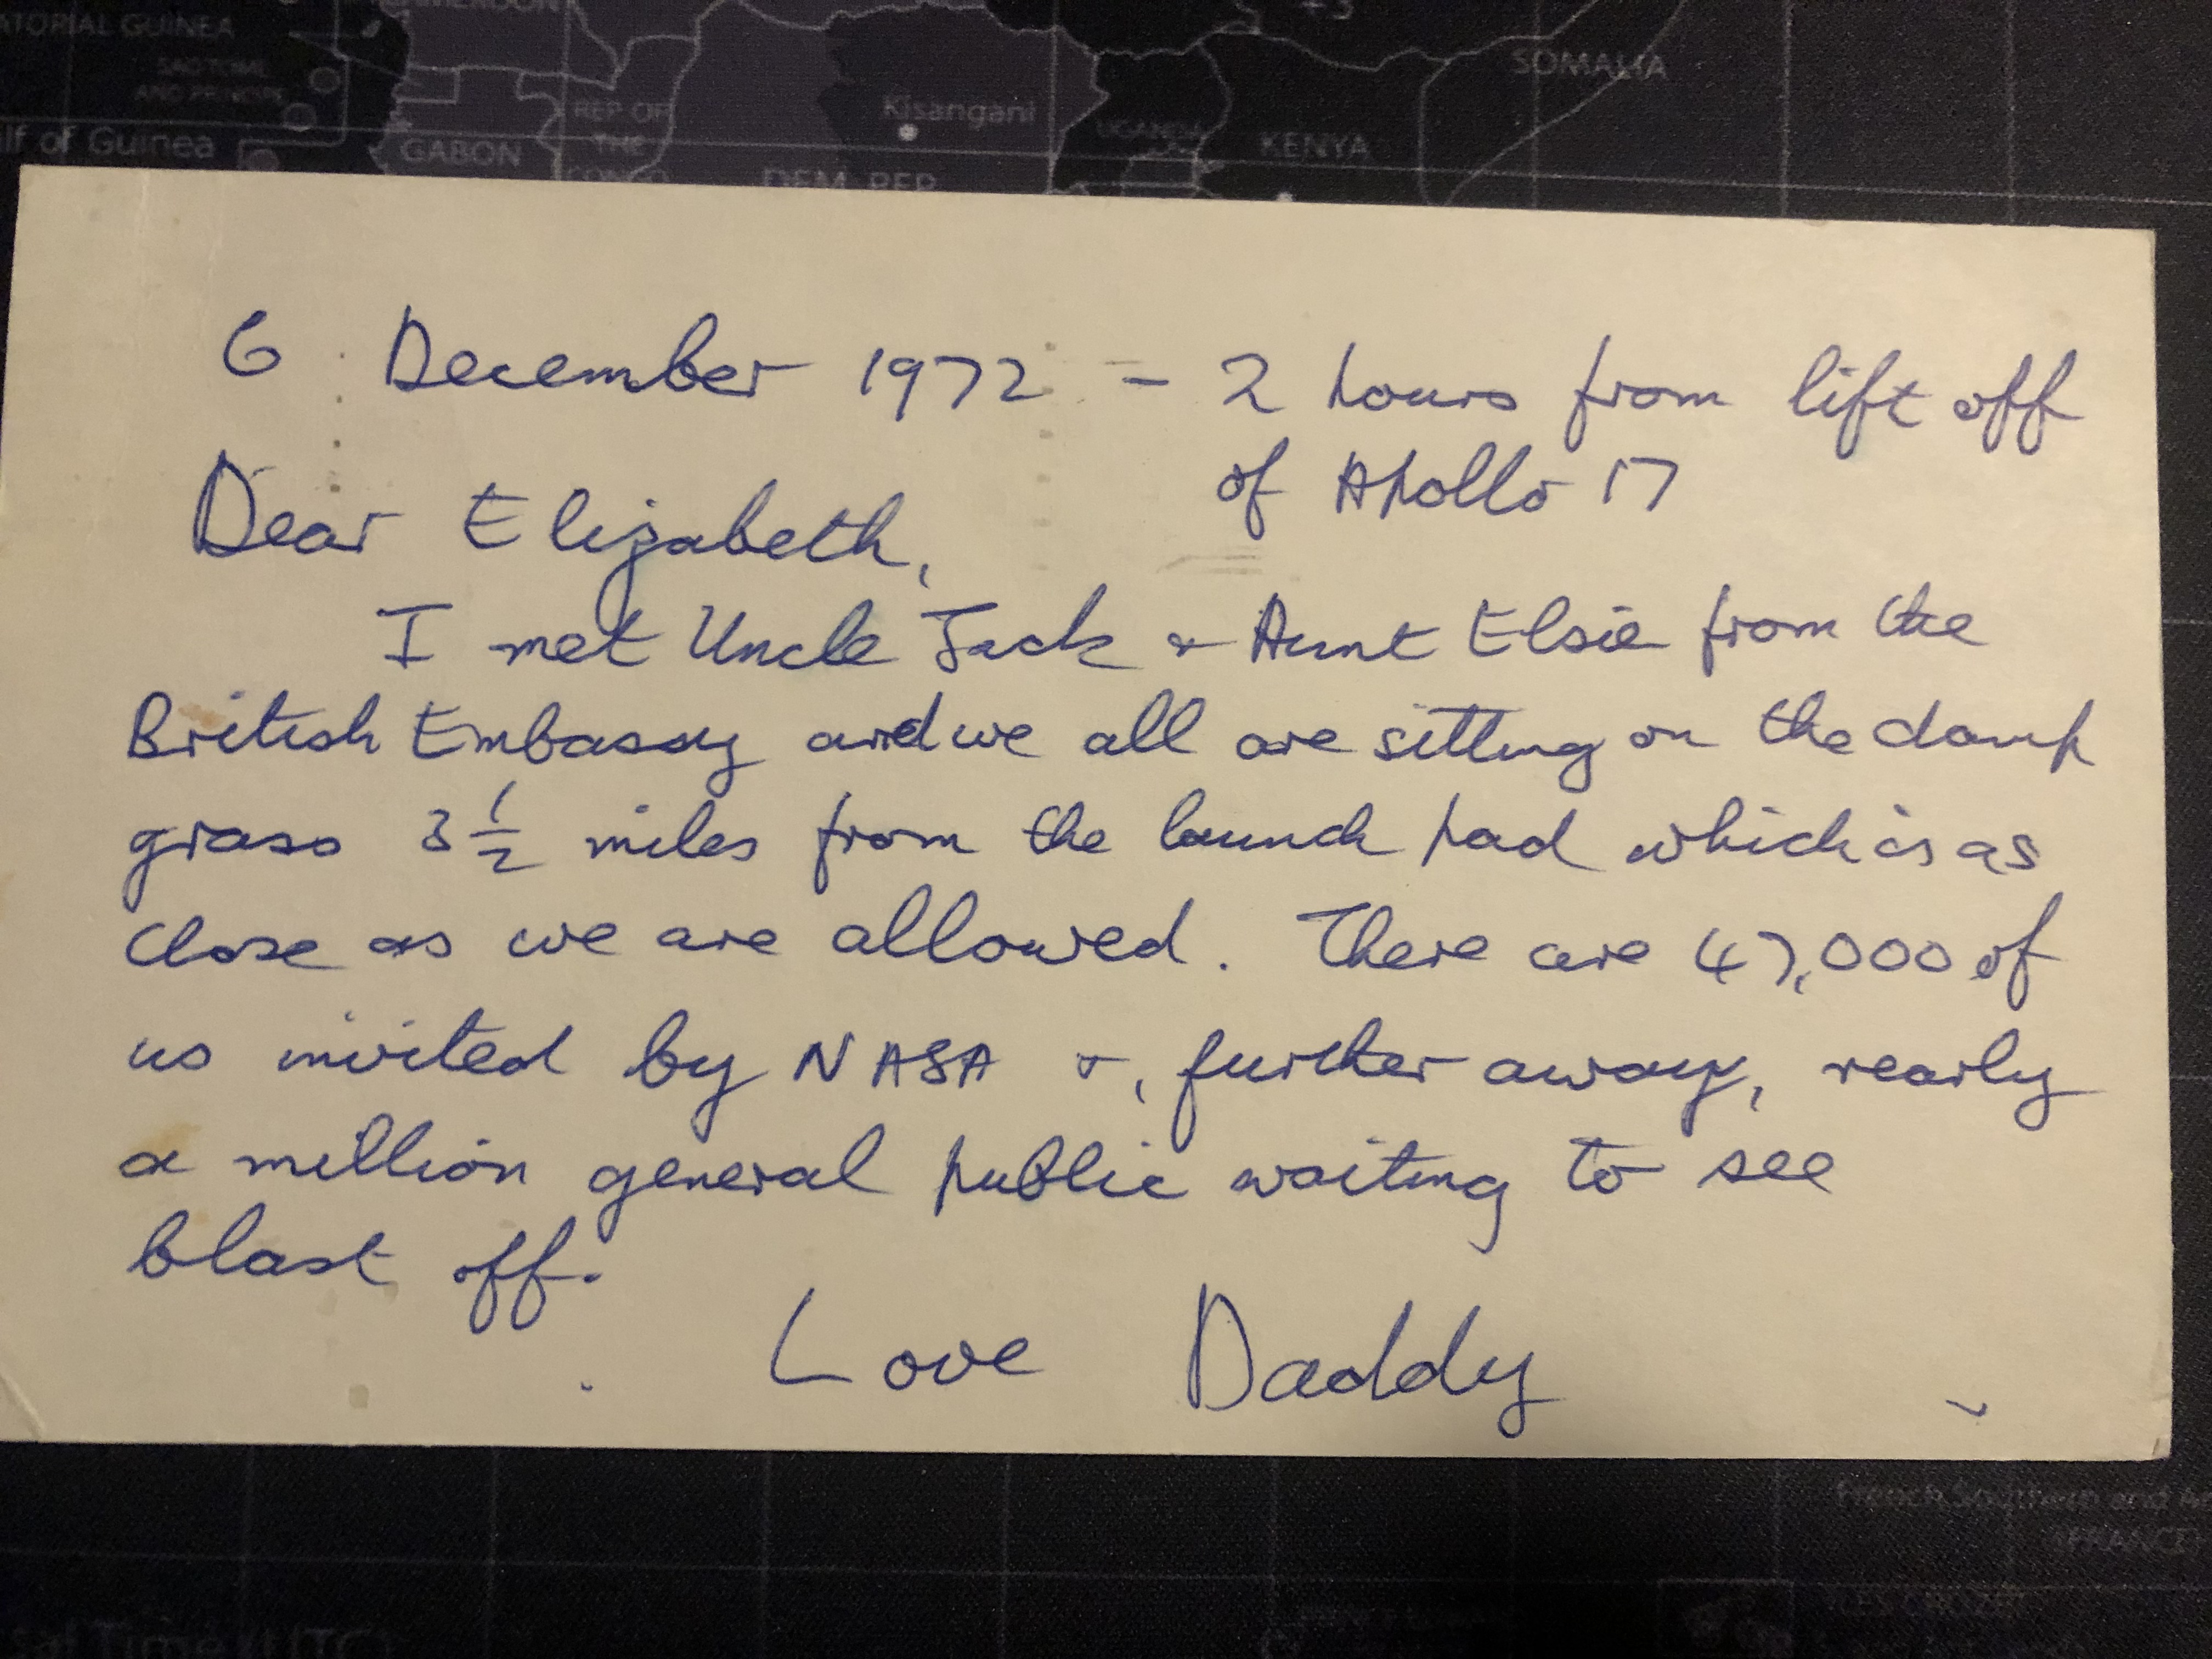 ATORIAL GUINEA
SAO TOME
AND PRINCIPE
Gulf of Guinea
GABON
REP OF
THE
CONGO
Kisangani
DEM. REP
UGANDA
KENYA
SOMALIA
6 December 1972 - 2 hours from lift off
of Apollo 17
Dear Elizabeth,
I met Uncle Jack & Aunt Elsie from the
British Embassy and we all are sitting on the damp
grass 3 1/2 miles from the launch pad which is as
close as we are allowed. There are 47,000 of
us invited by NASA &, further away, nearly
a million general public waiting to see
blast off.
Love Daddy
French Southern and A
(FRANCE)